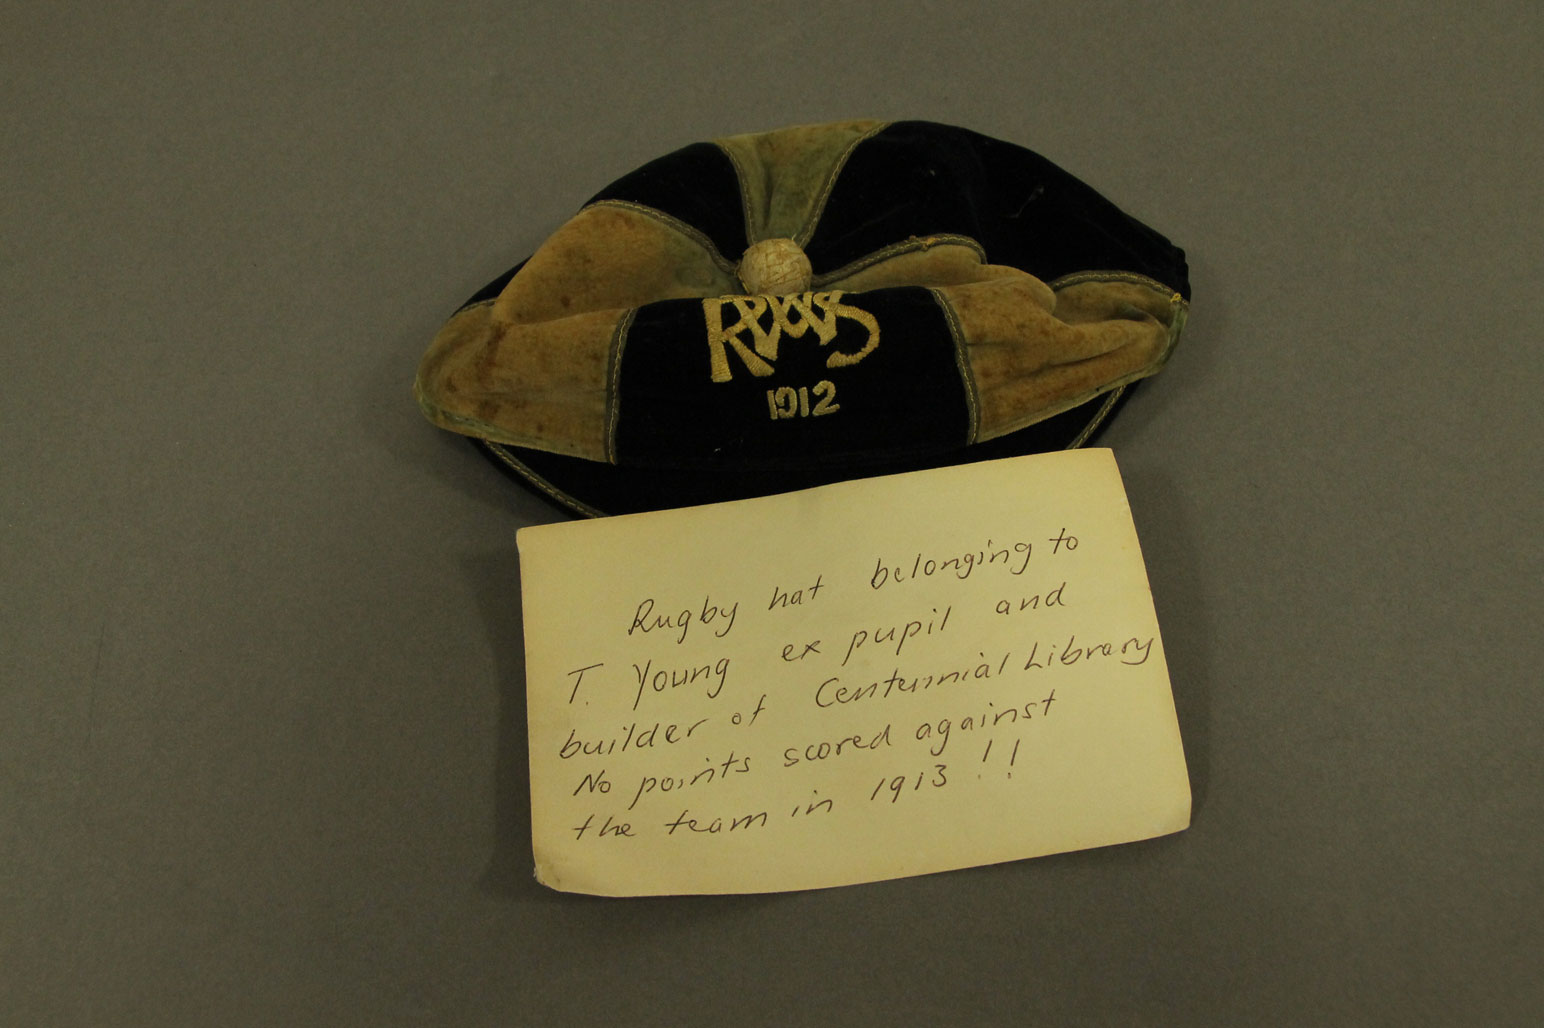 RWS
1912
Rugby hat belonging to
T. Young ex pupil and
builder of Centennial Library
No points scored against
the team in 1913!!